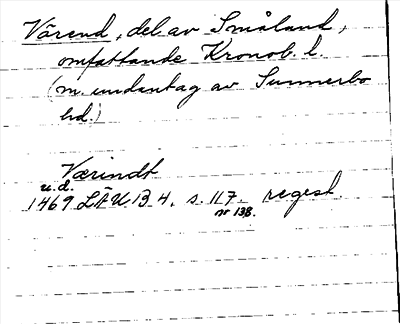 Värend, del av Småland,
omfattande Kronob. l.
(m undantag av Sunnerbo
hd.)
Værindt
u.d.
1469 LÄU B 4. s. 117 regest.
nr 138.